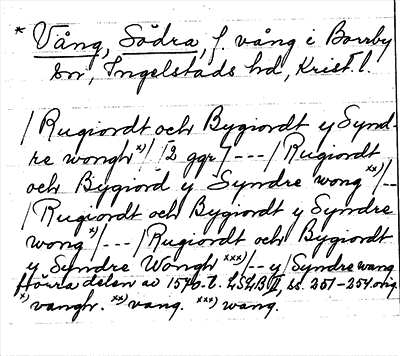 * Vång, Södra, f. vång i Borrby
sn, Ingelstads hd, Krist. l.
/ Rugiordt och Bygiordt y Synd-
re wongh x) / [2 ggr] --- / Rugiordt
och Bygiord y Syndre wong xx) /--
/ Rugiordt och Bygiordt y Syndre
wong x) / --- / Rugiordt och Bygiordt
y Syndre Wongh xxx) /-- y / Syndre wang
Norra delen av 1570-t. LSLB II, ss. 251-254 orig.
x) vangh. xx) vang. xxx) wang.